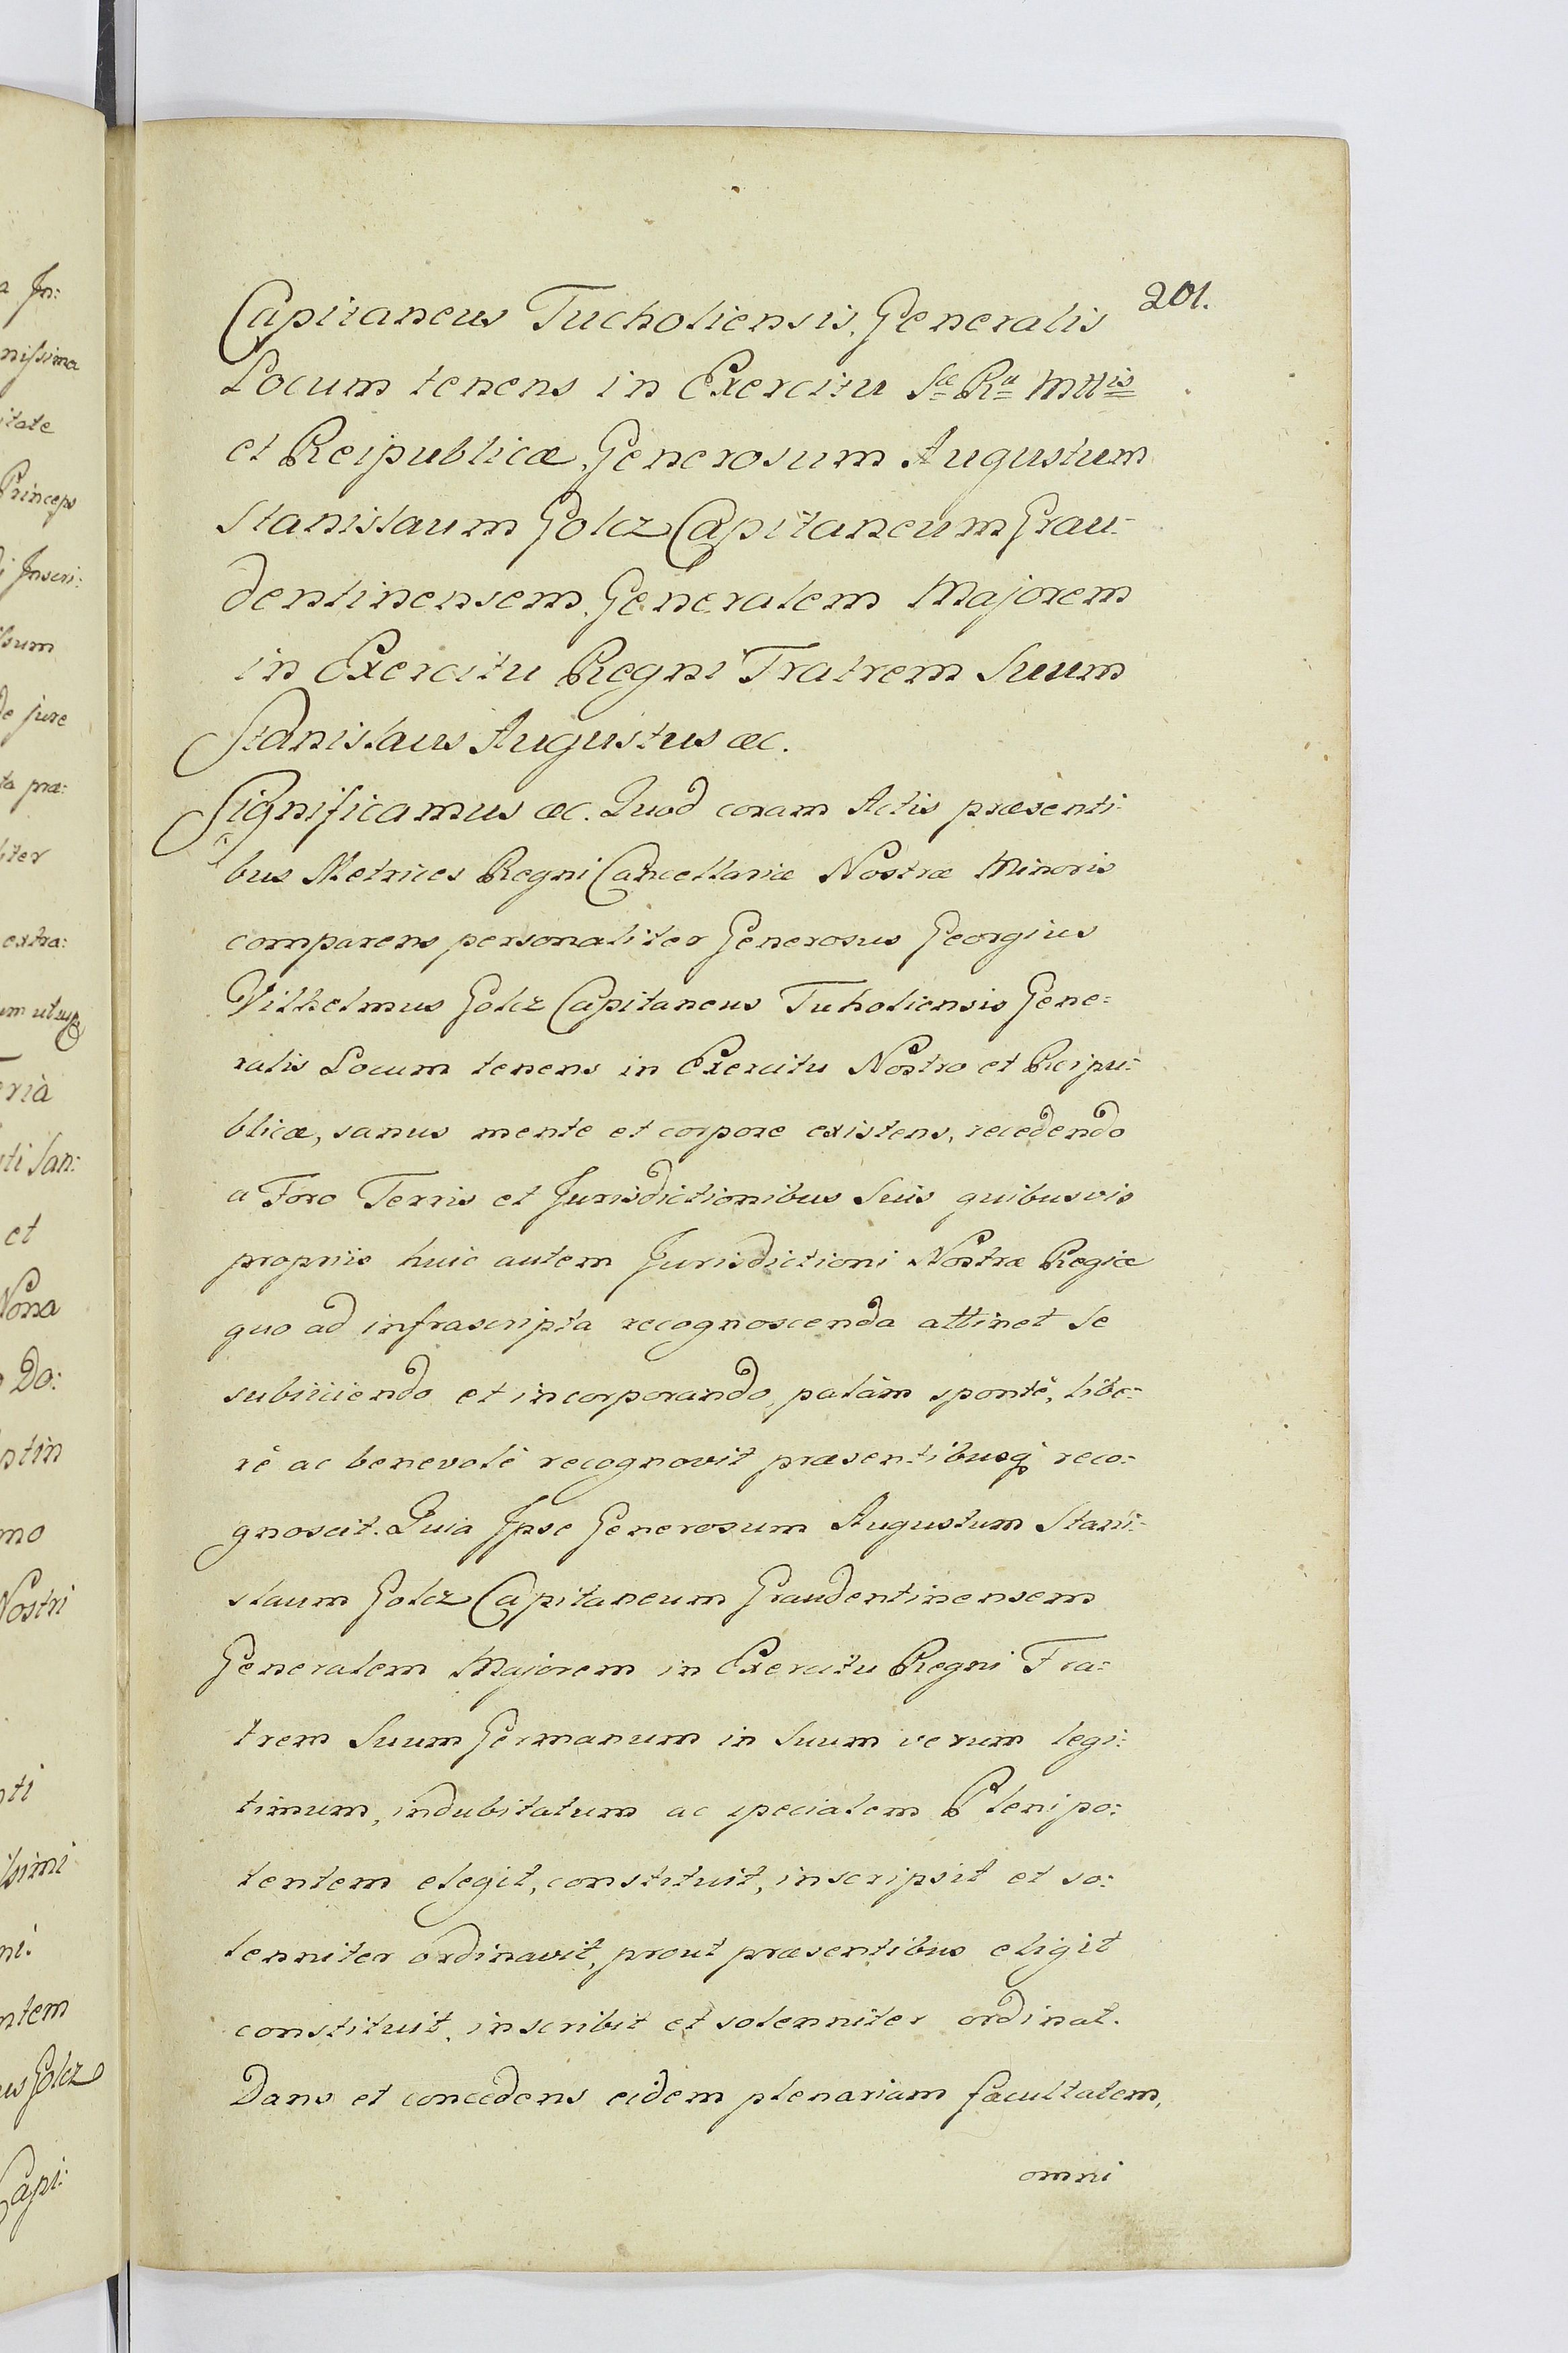 201.
Capitaneus Tucholiensis, Generalis
Locum tenens in Exercitu Sæ Ræ Mttis
et Reipublicæ, Generosum Augustum
Stanislaum Golcz Capitaneum Grau-
dentinensem, Generalem Majorem
in Exercitu Regni Fratrem Suum
Stanislaus Augustus &c.
Significamus &c. Quod coram Actis præsenti-
bus Metrices Regni Cancellariæ Nostræ Minoris
comparens personaliter Generosus Georgius
Vilhelmus Golcz Capitaneus Tuholiensis Gene:
ralis Locum tenens in Exercitu Nostro et Reipu:
blicæ, sanus mente et corpore existens, recedendo
a Foro Terris et Jurisdictionibus Suis quibusvis
propriis huic autem Jurisdictioni Nostræ Regiæ
quo ad infrascripta recognoscenda attinet se
subiiciendo et incorporando, palàm spontè, libe:
rè ac benevolè recognovit præsentibusq̢ reco:
gnoscit. Quia Ipse Generosum Augustum Stani:
slaum Golcz Capitaneum Graudentinensem
Generalem Majorem in Exercitu Regni Fra:
trem Suum Germanum in Suum verum legi:
timum, indubitatum ac specialem Plenipo:
tentem elegit, constituit, inscripsit et so:
lenniter ordinavit, prout præsentibus eligit
constituit, inscribit et solenniter ordinat.
Dans et concedens eidem plenariam facultatem,
omni
a In:
nissima
itate
Princeps
i Inscri:
ssum
de jure
ta præ:
liter
extra:
um utrq̢
eria
ti San:
et
Nona
Do:
stin
mo
Nostri
ti
ssimi
ni.
ntem
us Golcz
Capi: